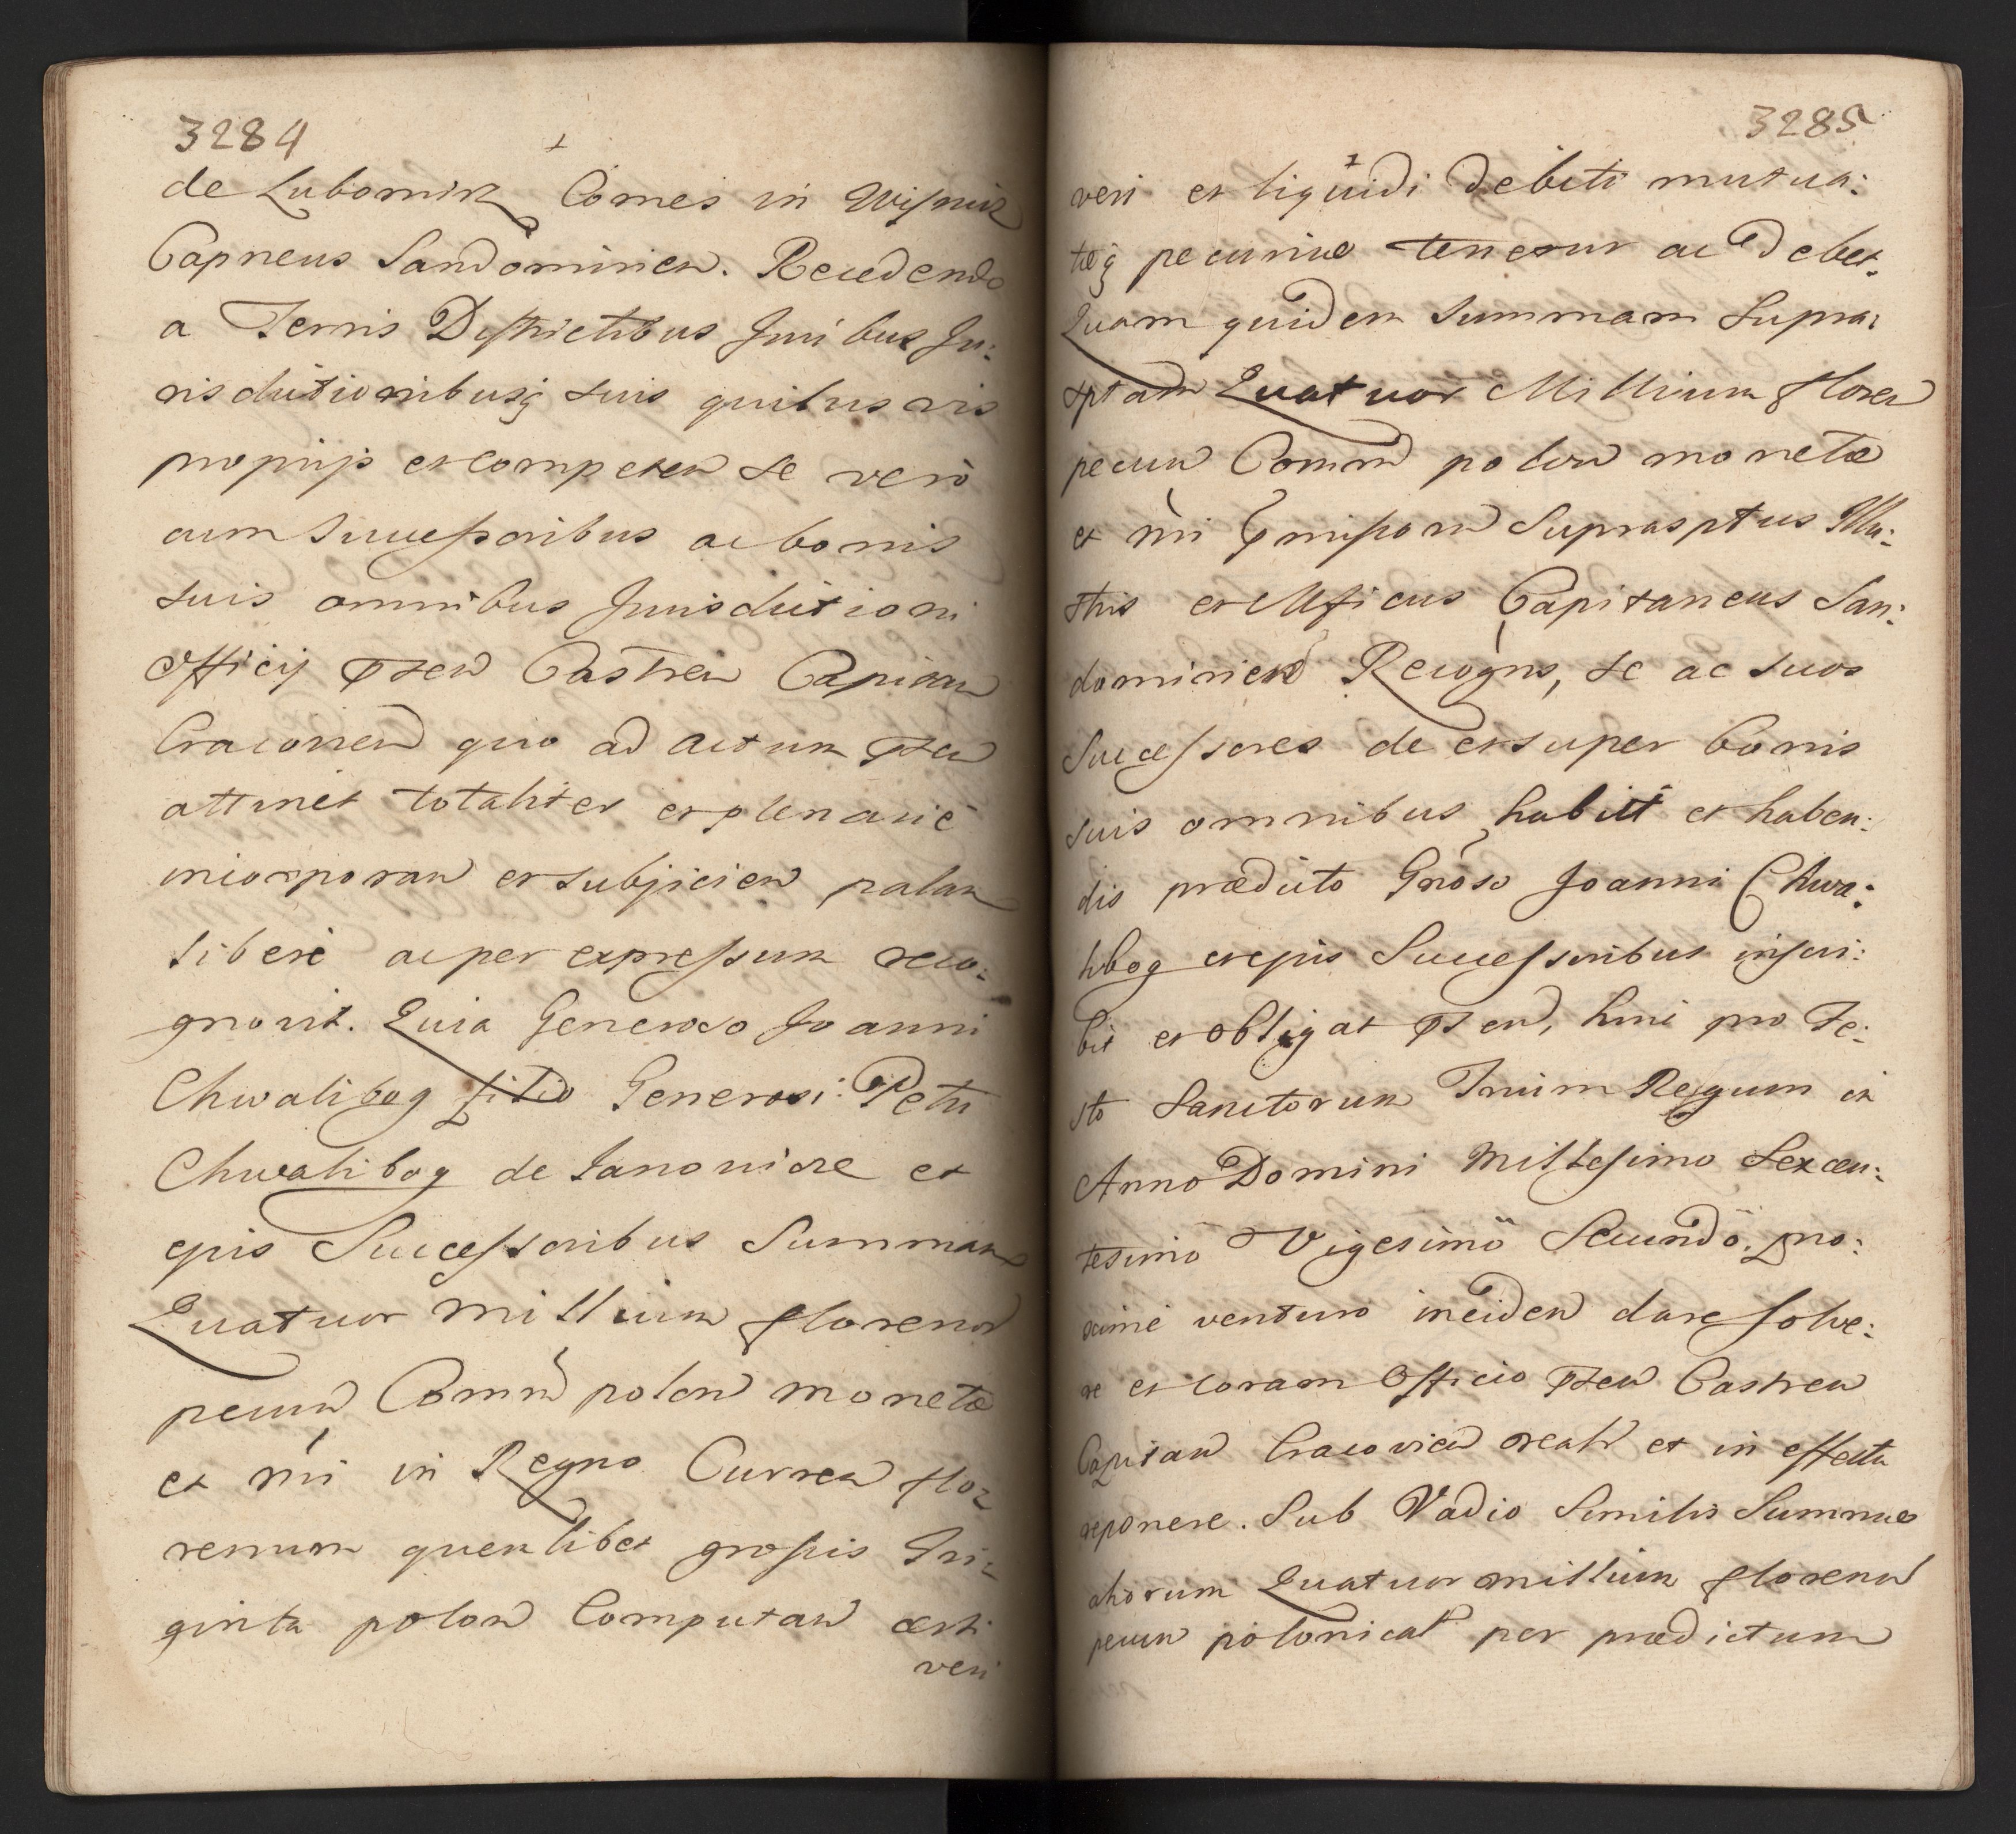 3284
de Lubomirz Comes in Wisnicz
Capneus Sandomirien. Recedendo
a Terris Districtibus Juribus Ju:
risdictionibusq suis quibusvis
proprijs et competen se vero
cum Successoribus ac bonis
suis omnibus Jurisdictioni
Officij Pnten Castren Capitan
Cracovien quo ad actum Pnten
attinet totaliter et plenarie
incorporan et subjicien palam
libere ac per expressum reco:
gnovit. Quia Generoso Joanni
Chwalibog filio Generosi: Petri
Chwalibog de Janovice et
ejus Successoribus Summam
Quatuor Millium florenor
pecun Comm polon moneta
et nri in Regno Curren flo:
renum quemlibet grossis Tri:
ginta polon Computan certi
veri
3285
veri et liquidi debiti mutua:
taeq pecuniae tenetur ac debet.
Quam quidem summam supra:
sptam Quatuor Millium floren
pecun Comm polon monetae
et nri pmissorum Suprasptus Illu:
stris et Mficus Capitaneus San:
domirien Recogns, se ac suos
Successores de et super bonis
suis omnibus habit et haben:
dis praedicto Gnoso Joanni Chwa:
libog et ejus Successoribus inscri:
bit et obligat Pnten, hinc pro Fe:
sto Sanctorum Trium Regum in
Anno Domini Millesimo Sexcen:
tesimo Vigesimo Secundo pro:
xime venturo inciden dare solve:
re et coram Officio Pnten Castren
Capitan Cracovien realr et in effectu
reponere. Sub Vadio Similis Summae
aliorum Quatuor millium florenor
pecun polonical per praedictum